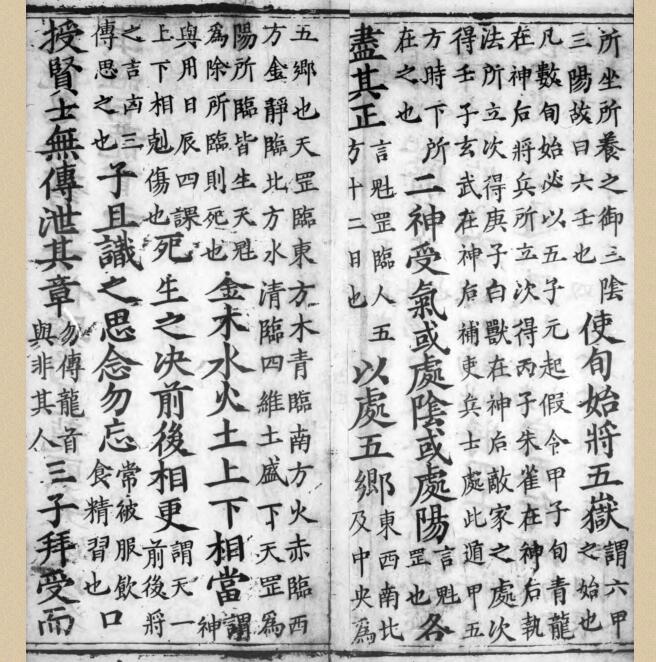 所坐所養之御三陰
三陽故曰六壬也
使旬始將五嶽
謂六甲
之始也
凡數旬始必以五子元起假令甲子旬青龍
在神后將兵所立次得丙子朱雀在神后執
法所立次得庚子白獸在神后敵家之處次
得壬子玄武在神后補吏兵士處此遁甲五
方時下所
在之也
二神受氣或處陰或處陽
言魁
罡也
各
盡其正
言魁罡臨人五
方十二日也
以處五鄉
東西南北
及中央為
五鄉也天罡臨東方木青臨南方火赤臨西
方金靜臨北方水清臨四維土盛下天罡為
陽所臨皆生天魁
為除所臨則死也
金木水火土上下相當
謂
神
與用日辰四課
上下相剋傷也
死生之决前後相更
謂天一
前後將
之吉凶三
傳思之也
子且識之思念勿忘
常被服飲
食精習也
口
授賢士無傳泄其章
勿傳龍首
與非其人
三子拜受而